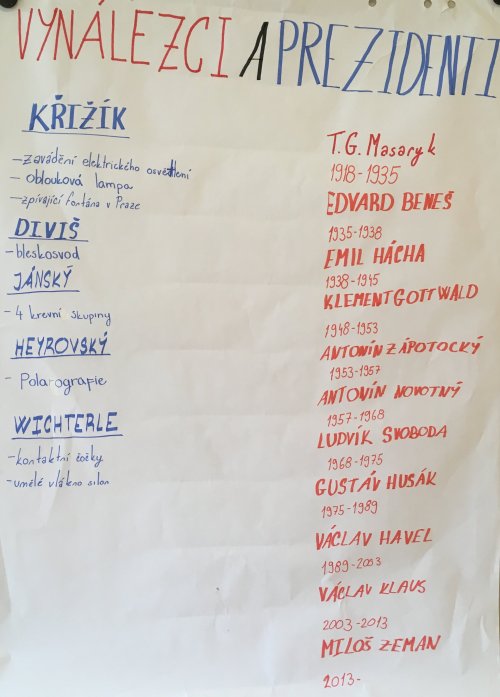 VYNÁLEZCI A PREZIDENTI
KŘIŽÍK
- zavádění elektrického osvětlení
- oblouková lampa
- zpívající fontána v Praze
DIVIŠ
- bleskosvod
JÁNSKÝ
- 4 krevní skupiny
HEYROVSKÝ
- Polarografie
WICHTERLE
- kontaktní čočky
- umělé vlákno silon
T.G. Masaryk
1918-1935
EDVARD BENEŠ
1935-1938
EMIL HÁCHA
1938-1945
KLEMENT GOTTWALD
1948-1953
ANTONÍN ZÁPOTOCKÝ
1953-1957
ANTOVÍN NOVOTNÝ
1957-1968
LUDVÍK SVOBODA
1968-1975
GUSTÁV HUSÁK
1975-1989
VÁCLAV HAVEL
1989-2003
VÁCLAV KLAUS
2003-2013
MILOŠ ZEMAN
2013-